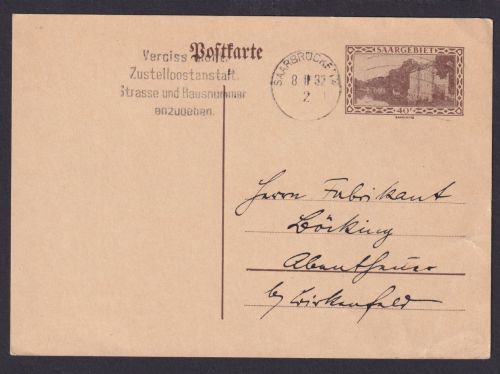 Postkarte
Vergiss nicht
Zustellpostanstalt
Strasse und Hausnummer
anzugeben.
SAARBRÜCKEN 2
8 II 32
2
SAARGEBIET
40
Herrn Fabrikant
Böcking
Abentheuer
b/ Birkenfeld